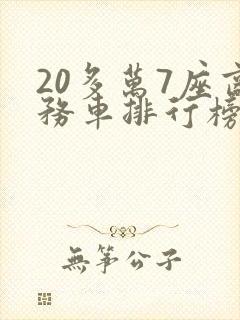 20多萬7座商
務車排行榜
無箏公子